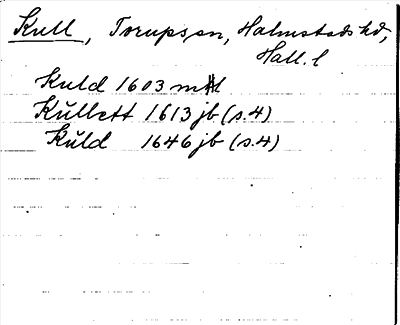 Kull, Torups sn, Halmstads hd,
Hall. l
Kuld 1603 mtl
Kullett 1613 jb (s. 4)
Kuld 1646 jb (s. 4)